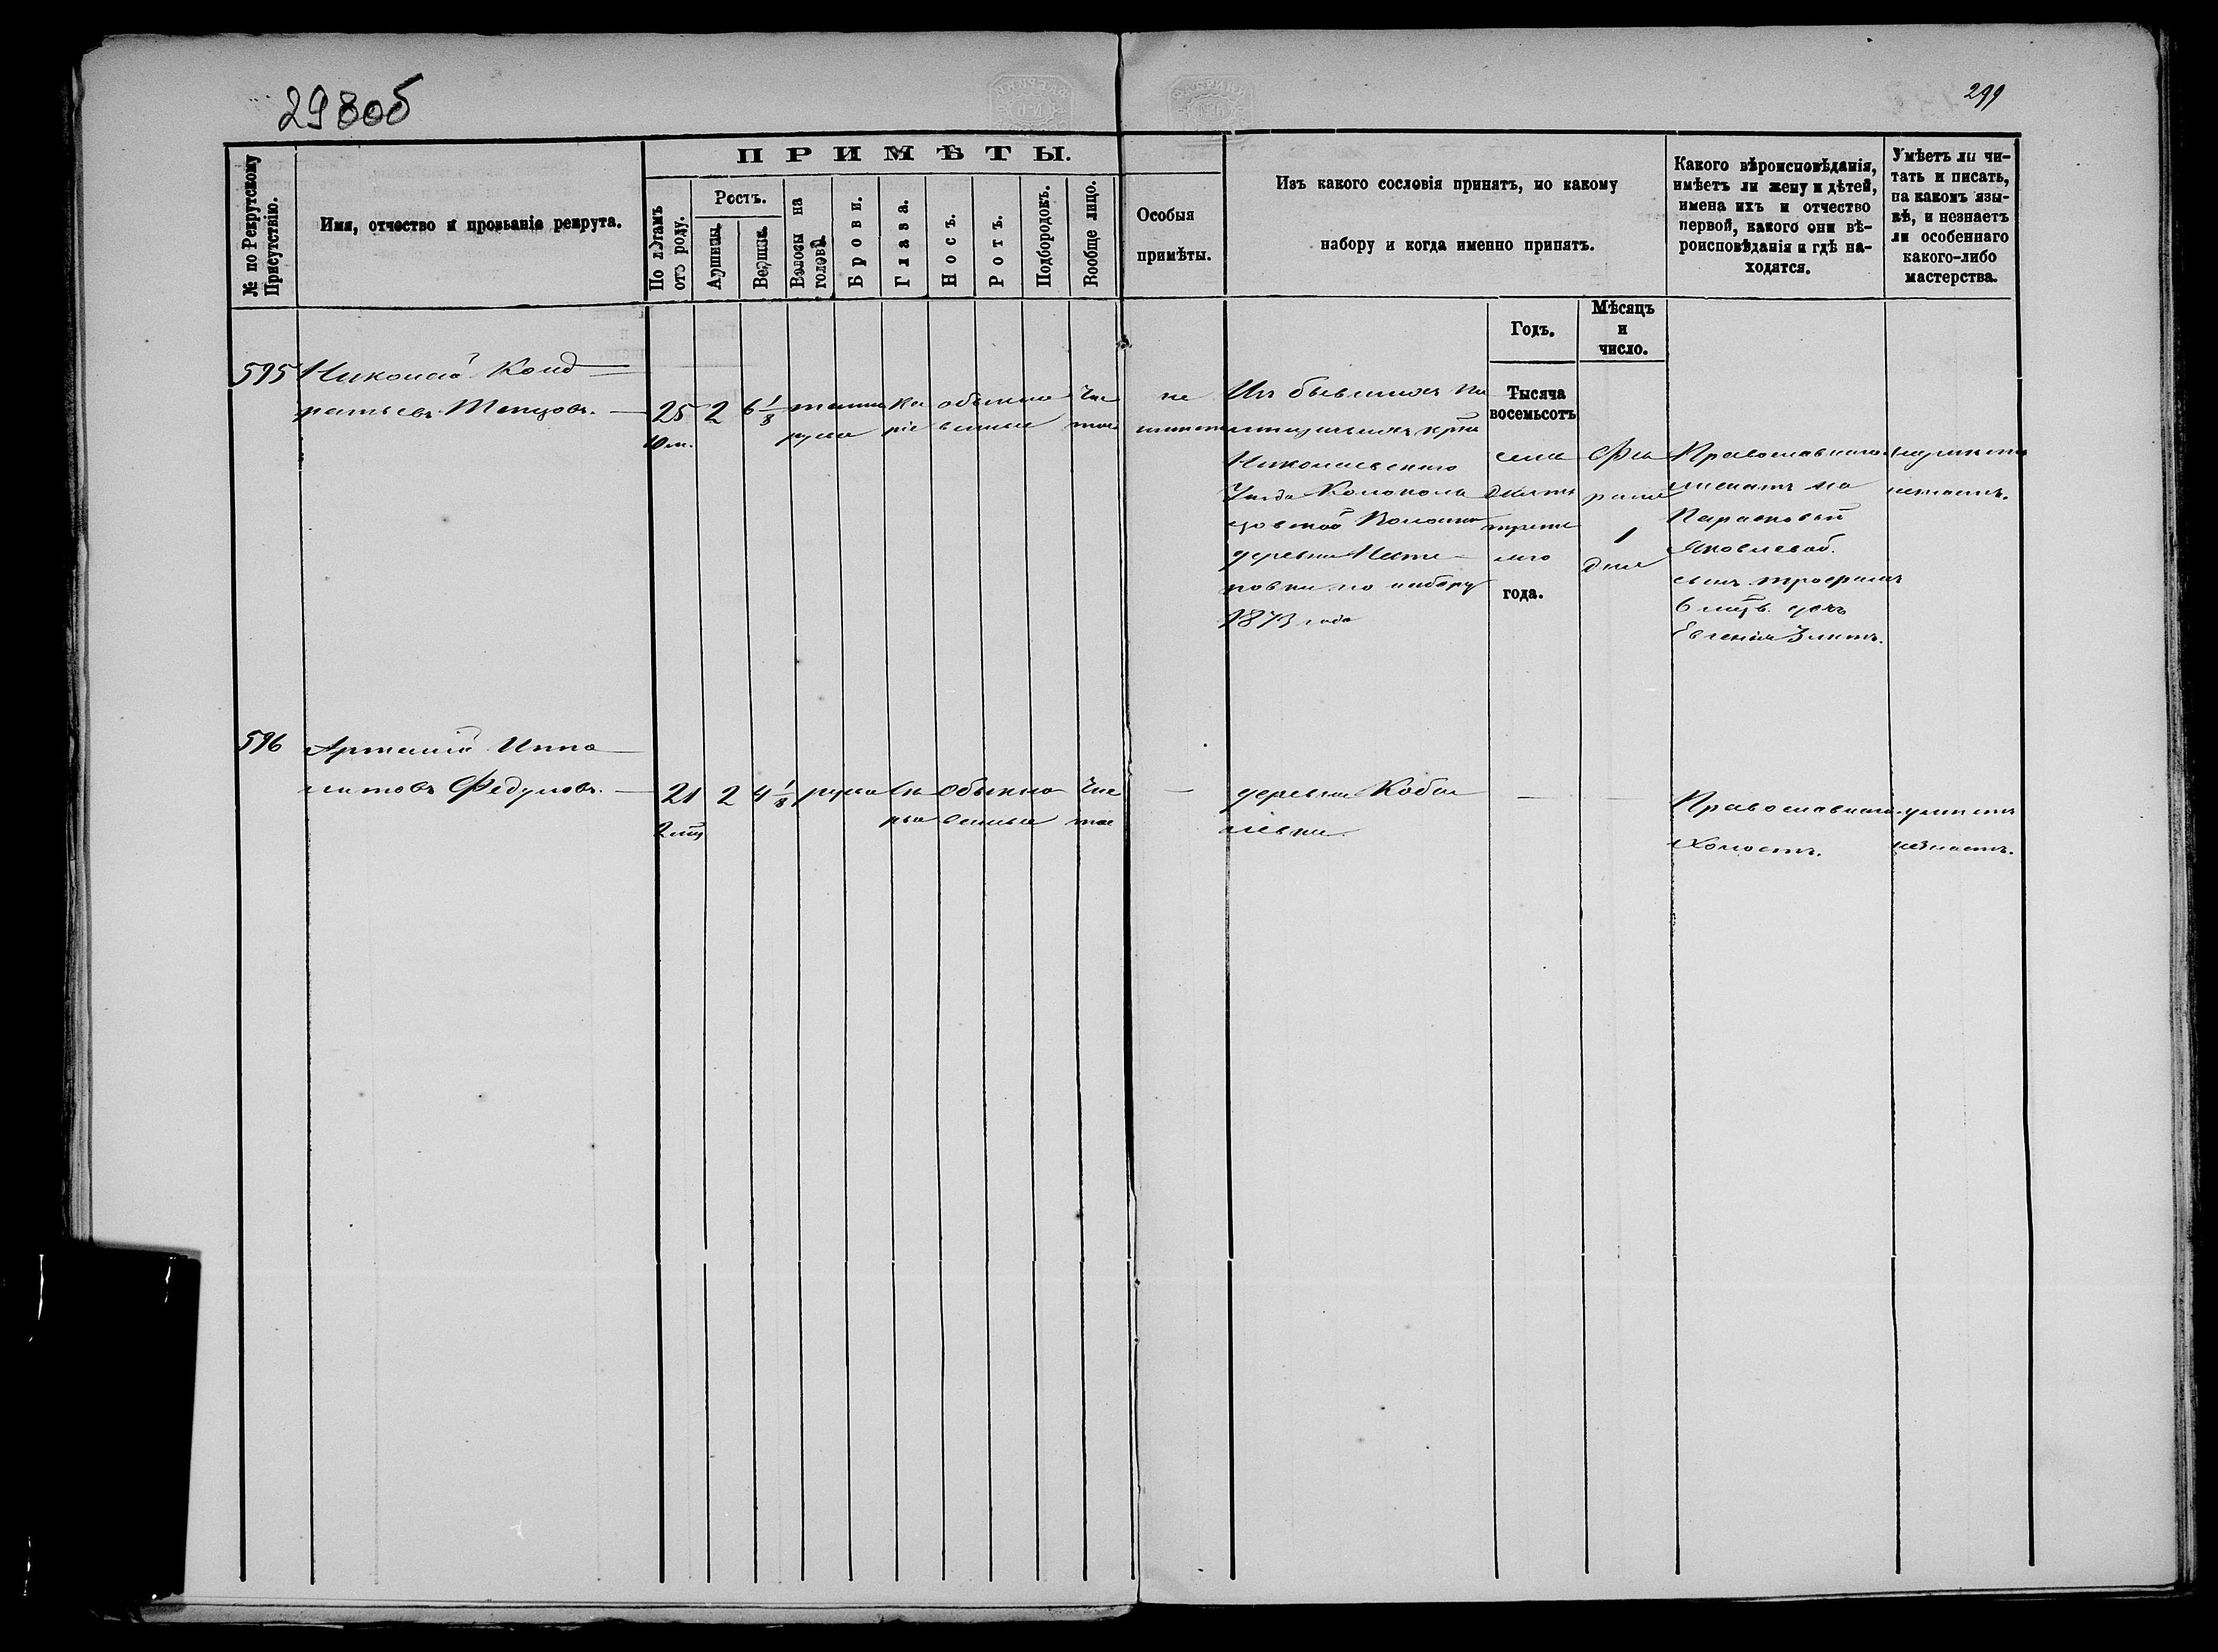 298об
299
№ по Рекрутскому Присутствію.
Имя, отчество и прозваніе рекрута.
ПРИМѢТЫ.
По лѣтамъ отъ роду.
Ростъ.
Аршины.
Вершки.
Волосы на головѣ.
Брови.
Глаза.
Носъ.
Ротъ.
Подбородокъ.
Вообще лицо.
Особыя
примѣты.
Изъ какого сословія принятъ, по какому
набору и когда именно принятъ.
Какого вѣроисповѣданія,
имѣетъ ли жену и дѣтей,
имена ихъ и отчество
первой, какого они вѣ-
роисповѣданія и гдѣ на-
ходятся.
Умѣетъ ли чи-
тать и писать,
на какомъ язы-
кѣ, и незнаетъ
ли особеннаго
какого-либо
мастерства.
Годъ.
Мѣсяцъ
и
число.
595
Николай Конд
ратьевъ
25
10 м.
2
6 1/8
темно
русые
ка
ріе
обыкно
венные
Чис
тое
не
имеетъ
Изъ бывшихъ
Николаевскаго
Уѣзда
Волости
деревни
по набору
1873 года
Тысяча
восемьсотъ
семь
десятъ
треть
яго
года.
Фев
раля
1
дня
Православнаго
женатъ на
Парасковьи
Яковлевой.
сынъ Трофимъ
6 мѣс. дочь
Евгенія 3 лѣтъ.
неумѣетъ
незнаетъ.
596
Артемій Иппо
литовъ Федуловъ.
21
2 мѣс
2
4 1/8
русые
сѣ
рые
Обыкно
венные
Чис
тое
деревни Кобы
левки.
Православнаго
Холостъ.
неумѣетъ
незнаетъ.